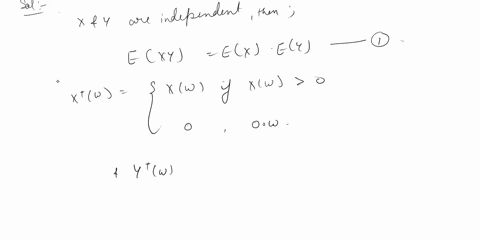 Sol:-
X & Y are independent, then;
E(XY) = E(X) · E(Y) —— ①
X⁺(ω) = { X(ω) if X(ω) > 0
0 , o·ω.
& Y⁺(ω)